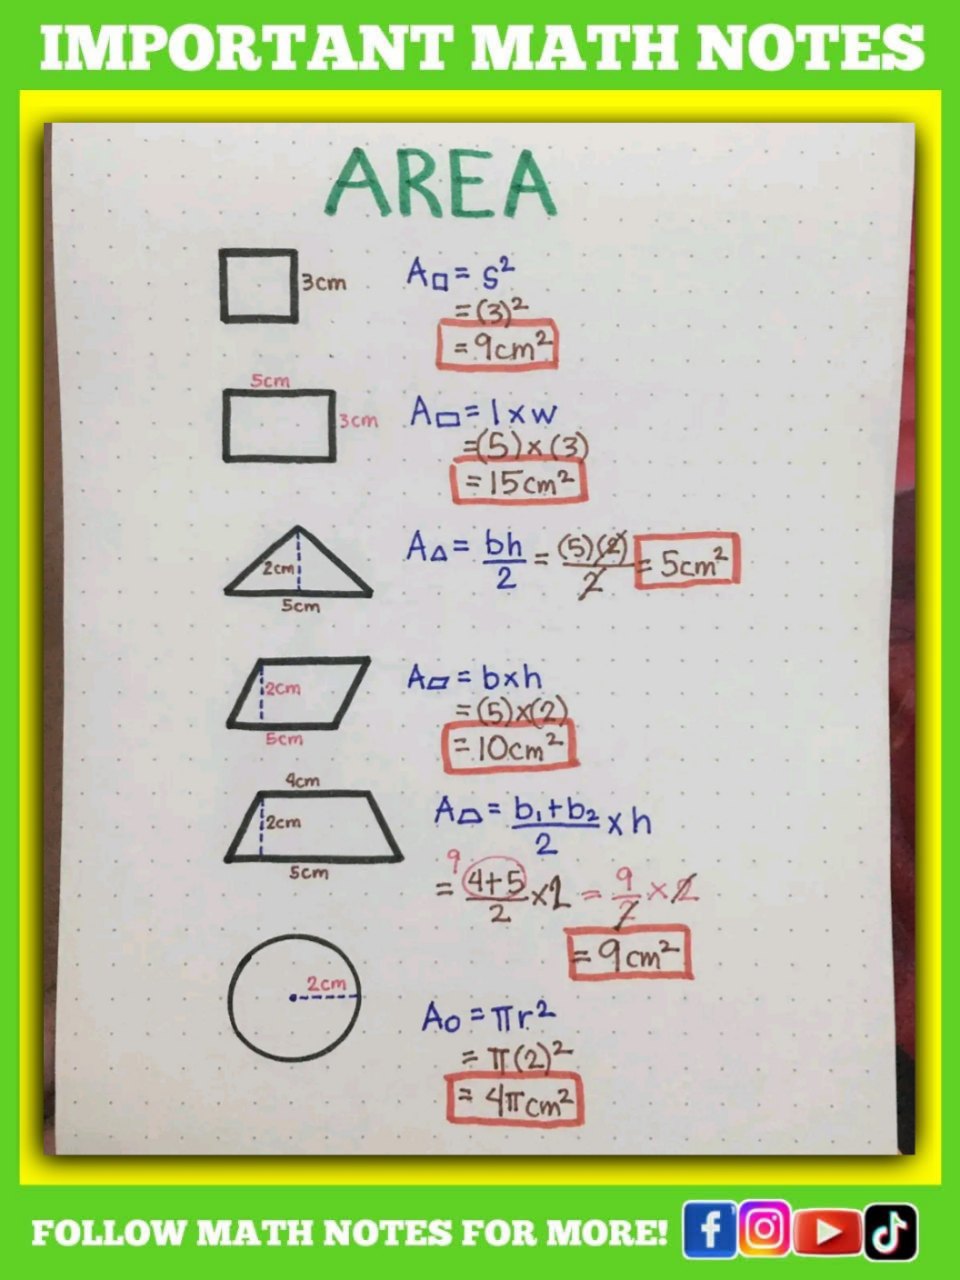 IMPORTANT MATH NOTES
AREA
3cm
A□ = s²
= (3)²
= 9cm²
5cm
3cm
A▭ = l x w
= (5) x (3)
= 15cm²
2cm
5cm
A△ = bh/2 = (5)(2)/2 = 5cm²
2cm
5cm
A▱ = b x h
= (5) x (2)
= 10cm²
4cm
2cm
5cm
A⏢ = b₁ + b₂/2 x h
9
= 4+5/2 x 2 = 9/2 x 2
= 9cm²
2cm
A○ = πr²
= π(2)²
= 4πcm²
FOLLOW MATH NOTES FOR MORE!